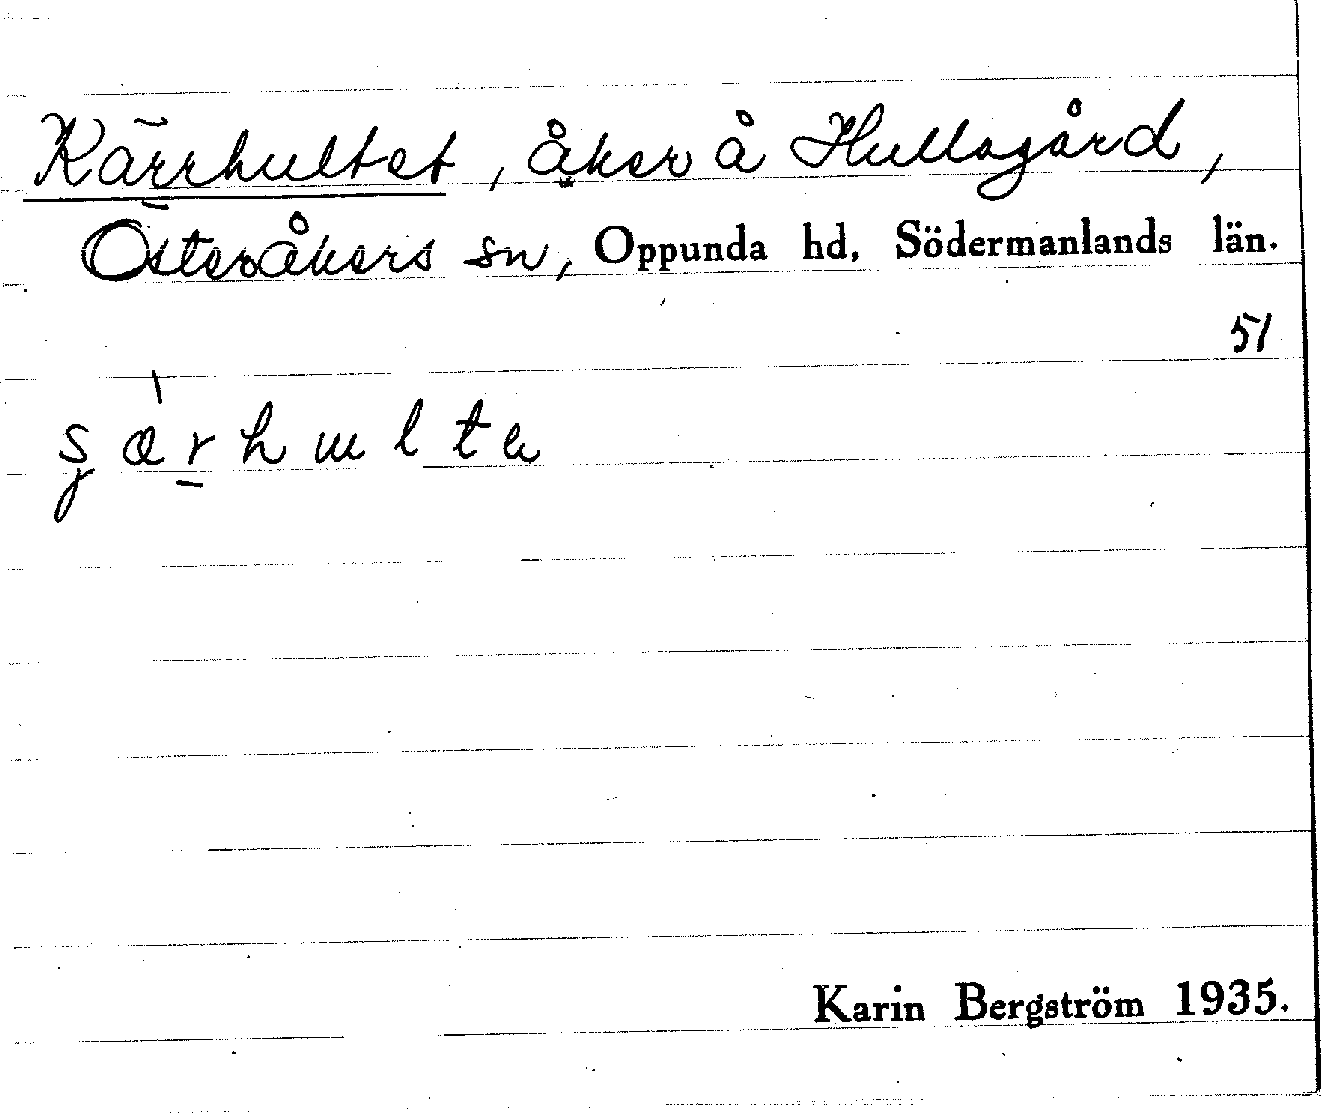 Kärrhultet, åker å Hullsgård,
Österåkers sn, Oppunda hd, Södermanlands län.
51
Karin Bergström 1935.